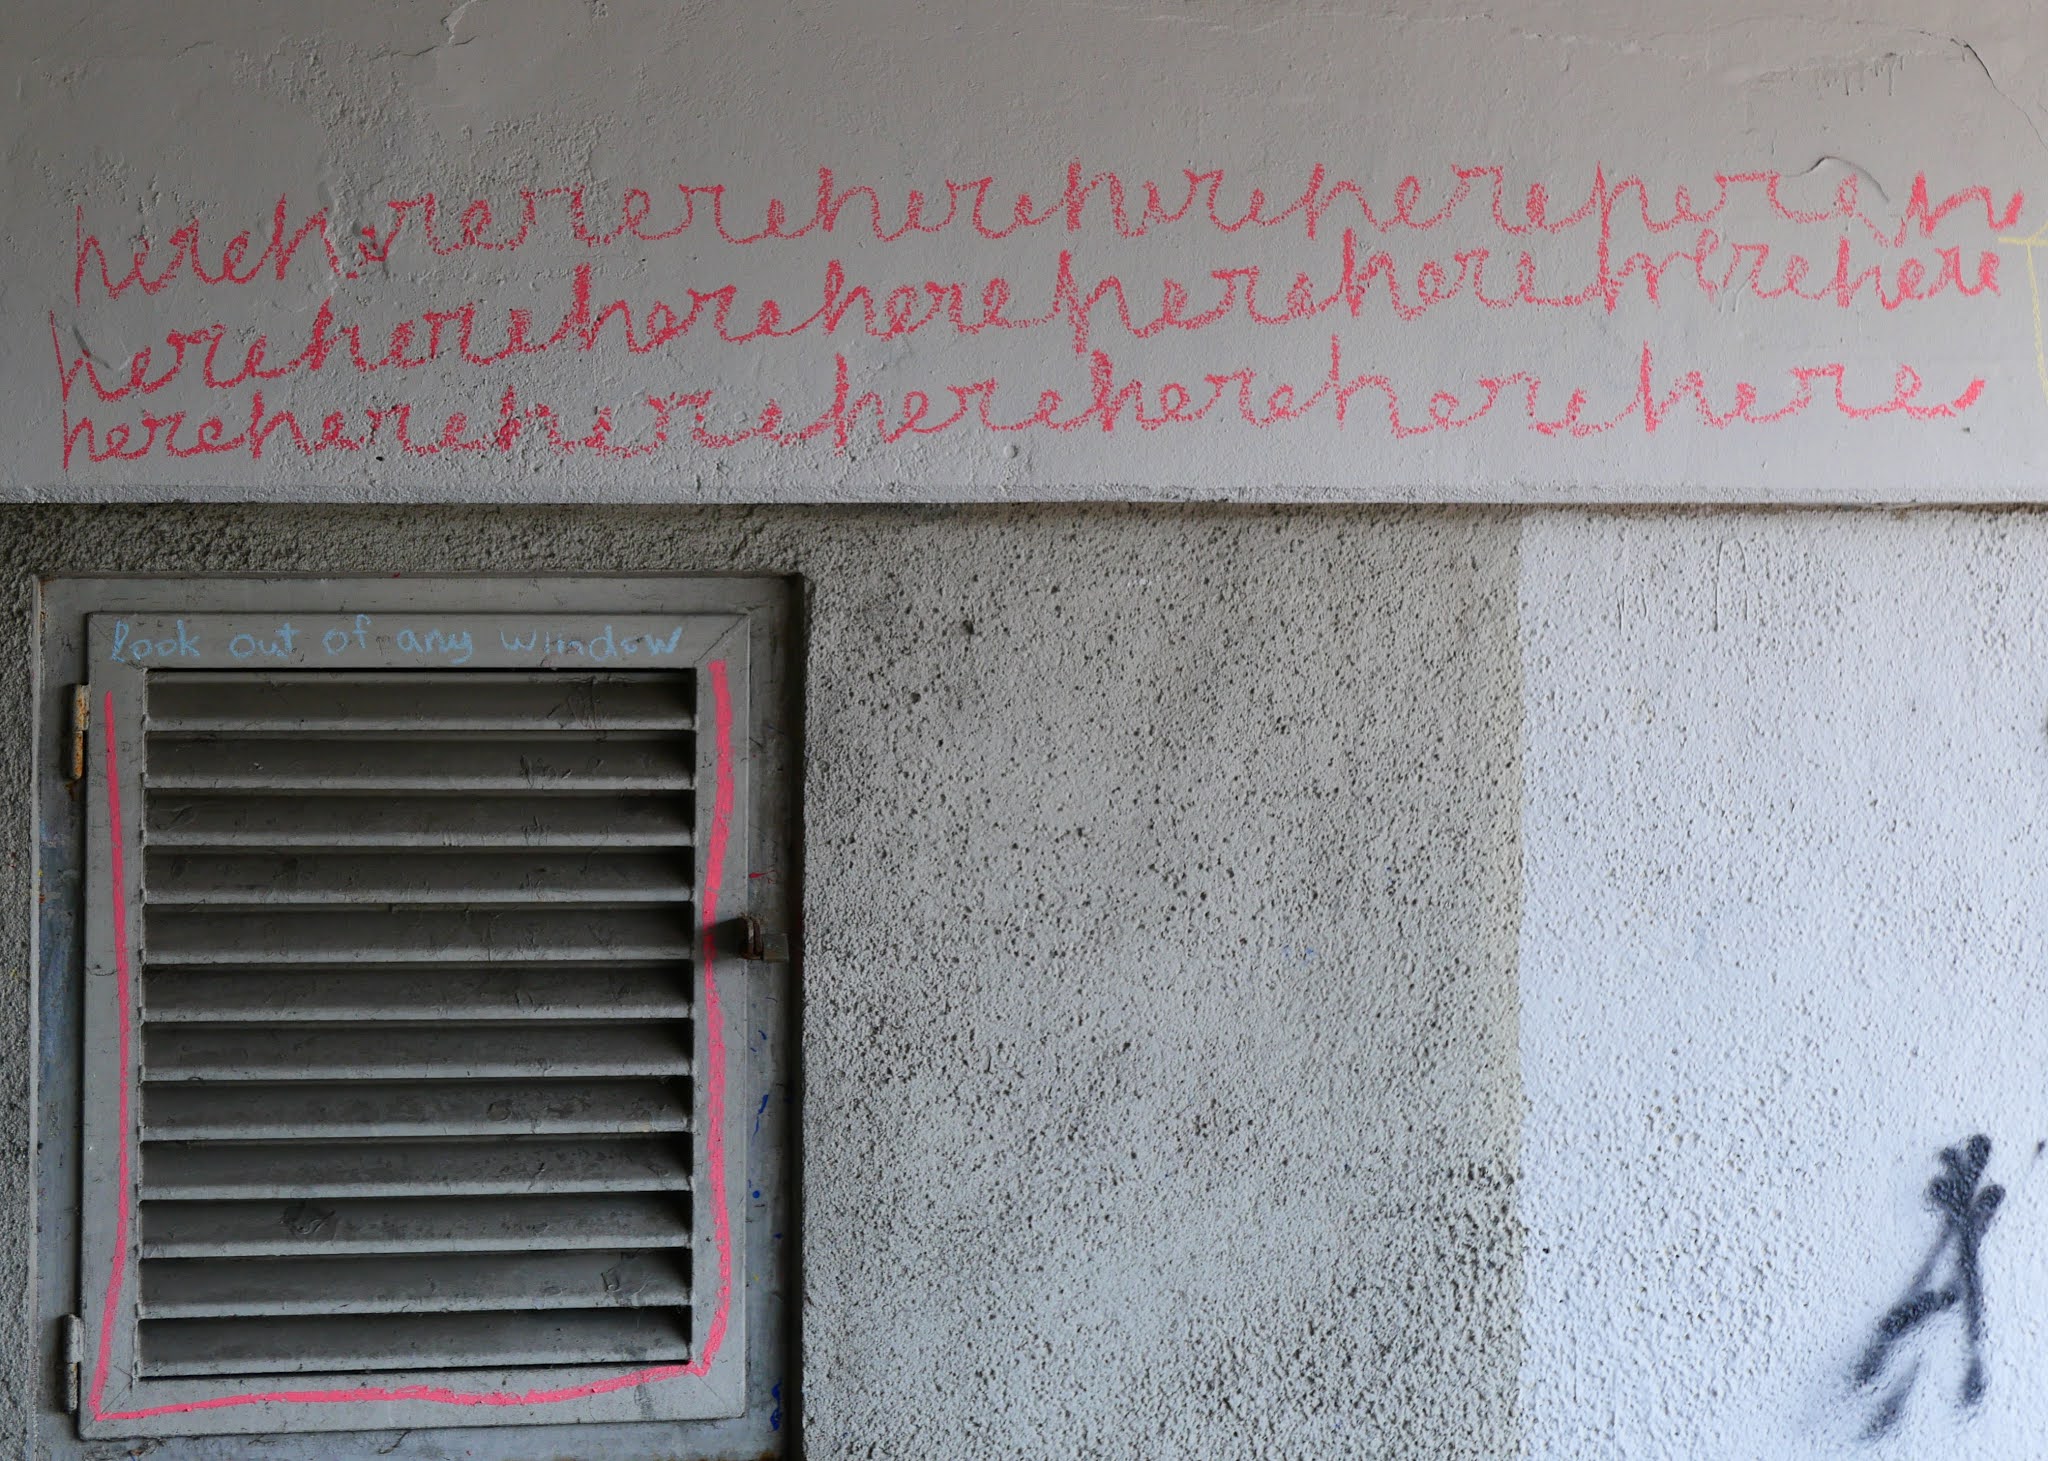 herehererererehereherehereherehe
herehereherehereherehereherehere
herehereherehereherehere​here
look out of any window